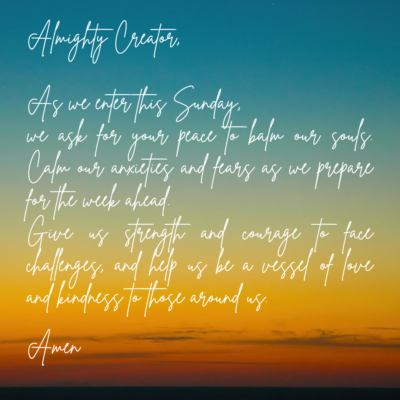 Almighty Creator,
As we enter this Sunday,
we ask for your peace to balm our souls.
Calm our anxieties and fears as we prepare
for the week ahead.
Give us strength and courage to face
challenges, and help us be a vessel of love
and kindness to those around us.
Amen